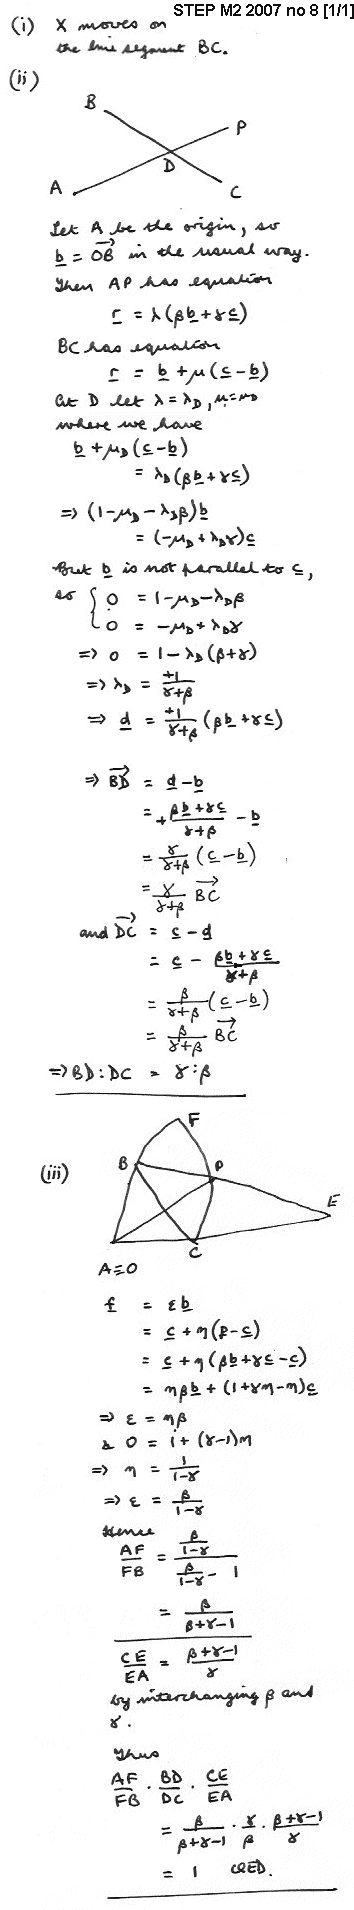 STEP M2 2007 no 8 [1/1]
(i) X moves on
the line segment BC.
(ii)
B
P
D
A
C
Let A be the origin, so
b = OB in the usual way.
Then AP has equation
r = λ(βb + γc)
BC has equation
r = b + μ(c - b)
At D let λ = λ_D, μ = μ_D
where we have
b + μ_D(c - b)
= λ_D(βb + γc)
⇒ (1 - μ_D - λ_Dβ)b
= (-μ_D + λ_Dγ)c
But b is not parallel to c,
so { 0 = 1 - μ_D - λ_Dβ
0 = -μ_D + λ_Dγ
⇒ 0 = 1 - λ_D(β+γ)
⇒ λ_D = +1/(γ+β)
⇒ d = +1/(γ+β) (βb + γc)
⇒ BD = d - b
= + (βb + γc)/(γ+β) - b
= γ/(γ+β) (c - b)
= γ/(γ+β) BC
and DC = c - d
= c - (βb + γc)/(γ+β)
= β/(γ+β) (c - b)
= β/(γ+β) BC
⇒ BD : DC = γ : β
(iii)
F
B
P
E
C
A≡O
f = εb
= c + η(p - c)
= c + η(βb + γc - c)
= ηβb + (1 + γη - η)c
⇒ ε = ηβ
& 0 = 1 + (γ-1)η
⇒ η = 1/(1-γ)
⇒ ε = β/(1-γ)
Hence
AF/FB = (β/(1-γ))/(β/(1-γ) - 1)
= β/(β+γ-1)
CE/EA = (β+γ-1)/γ
by interchanging β and
γ.
Thus
AF/FB . BD/DC . CE/EA
= β/(β+γ-1) . γ/β . (β+γ-1)/γ
= 1 QED.